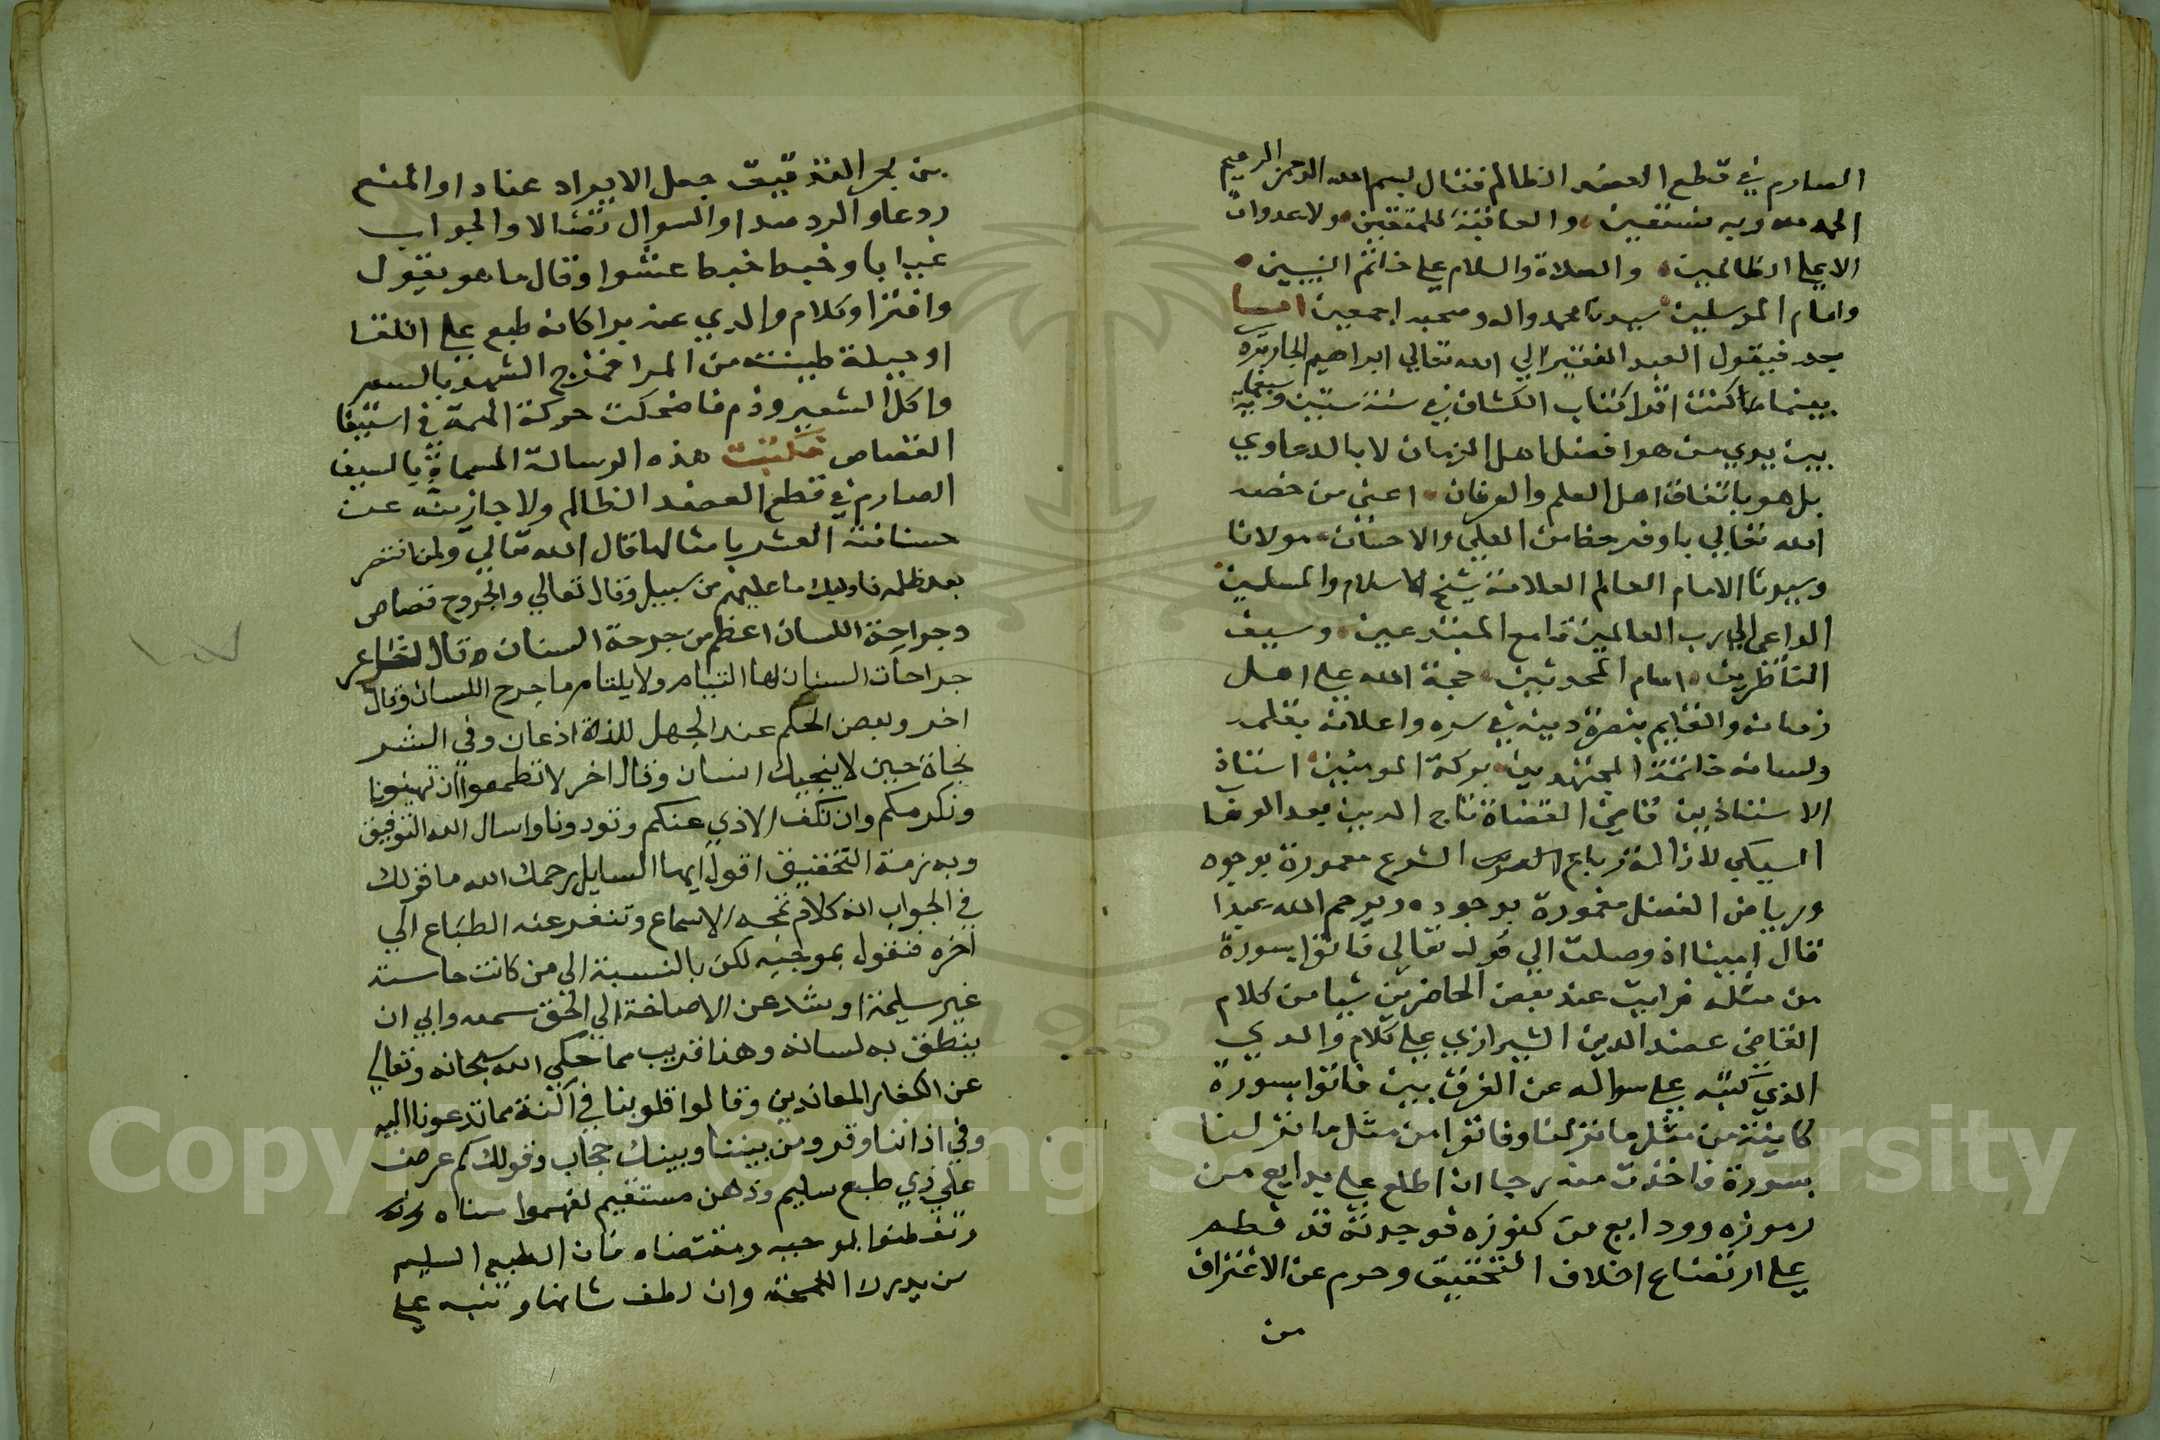 الصارم في قطع العضد الظالم فقال بسم الله الرحمن الرحيم
الحمد لله وبه نستعين والعاقبة للمتقين ولا عدوان
الا على الظالمين والصلاة والسلام على خاتم النبيين
وامام المرسلين سيدنا محمد واله وصحبه اجمعين اما
بعد فيقول العبد الفقير الي الله تعالي ابراهيم الجاربردي
بينما كنت اقرا كتاب الكشاف في سنة ستين وسبعمايه
بين يدي من هو افضل اهل الزمان لا بالدعاوي
بل هو باتفاق اهل العلم والعرفان اعني من خصه
الله تعالي باوفر حظ من العلي والاحسان مولانا
وسيدنا الامام العالم العلامة شيخ الاسلام والمسلمين
الداعي الي رب العالمين قامع المبتدعين وسيف
المناظرين امام المحدثين حجة الله علي اهل
زمانه والقايم بنصرة دينه في سره واعلانه بقلمه
ولسانه خاتمة المجتهدين بركة المومنين استاذ
الاستاذين قاضي القضاة تاج الدين عبد الوهاب
السبكي لا زالت رباع الشرع معمورة بوجوده
ورياض الفضل مغمورة بجوده ويرحم الله عبدا
قال امينا اذ وصلت الي قوله تعالي فاتوا بسورة
من مثله فرايت عند بعض الحاضرين شيا من كلام
القاضي عضد الدين الشيرازي علي كلام والدي
الذي كتبه علي سواله عن الفرق بين فاتوا بسورة
كاينة من مثل ما نزلنا وفاتوا من مثل ما نزلنا
بسورة فاخذت منه رجا ان اطلع علي بدايع من
رموزه وودايع من كنوزه فوجدته قد فطم
علي ارتضاع اخلاف التحقيق وحرم عن الاغتراف
من
من بحر التدقيق جعل الايراد عنادا والمنع
ردعا والرد صدا والسوال نضالا والجواب
غيابا وخبط خبط عشوا وقال ما هو تقول
وافترا وكلام والدي عنه برا كانه طبع علي اللغا
او جبلة طينته من المرا فمزج الشهد بالسم
واكل الشعير وذم فاضحكت حركة الهمة في استيفا
القصاص فكتبت هذه الرسالة المسماة بالسيف
الصارم في قطع العضد الظالم ولاجازينه عن
حسناته العشر بامثالها قال الله تعالي ولمن انتصر
بعد ظلمه فاوليك ما عليهم من سبيل وقال تعالي والجروح قصاص
وجراحة اللسان اعظم من جرحة السنان وقال الشاعر
جراحات السنان لها التيام ولا يلتام ما جرح اللسان وقال
اخر وبعض الحلم عند الجهل للذلة اذعان وفي الشر
نجاة حين لا ينجيك احسان وقال اخر لا تطمعوا ان تهينونا
ونكرمكم وان نكف الاذي عنكم وتوذونا واسال الله التوفيق
وبه ازمة التحقيق اقول ايها السايل رحمك الله ما قولك
في الجواب انه كلام تمجه الاسماع وتنفر عنه الطباع الي
اخره فنقول بموجبه لكن بالنسبة الي من كانت حاسته
غير سليمة او سد عن الاصاخة الي الحق سمعه وابي ان
ينطق به لسانه وهذا قريب مما حكي الله سبحانه وتعالي
عن الكفار المعاندين وقالوا قلوبنا في اكنة مما تدعونا اليه
وفي اذاننا وقر ومن بيننا وبينك حجاب وقولك كم عرض
علي ذي طبع سليم وذهن مستقيم لم يفهموا معناه
وتفطنوا لموجبه ومقتضاه فان الطبع السليم
من يدرك اللمحة وان لطف شانها وتنبه علي
Copyright © King Saud University
1957